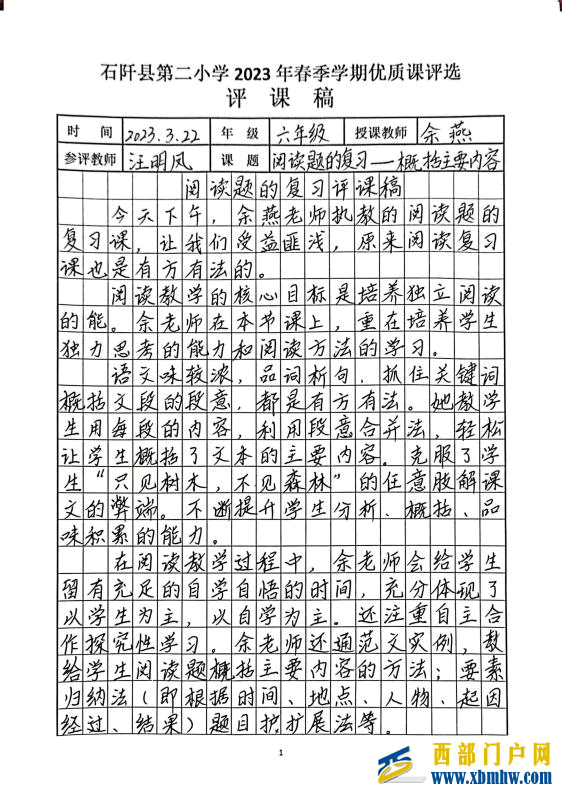 石阡县第二小学2023年春季学期优质课评选
评 课 稿
时 间 2023.3.22 年 级 六年级 授课教师 余燕
参评教师 汪明凤 课 题 阅读题的复习——概括主要内容
阅读题的复习评课稿
今天下午，余燕老师执教的阅读题的
复习课，让我们受益匪浅，原来阅读复习
课也是有方有法的。
阅读教学的核心目标是培养独立阅读
的能。余老师在本节课上，重在培养学生
独力思考的能力和阅读方法的学习。
语文味较浓，品词析句，抓住关键词
概括文段的段意，都是有方有法。她教学
生用每段的内容，利用段意合并法，轻松
让学生概括了文本的主要内容。克服了学
生“只见树木，不见森林”的任意肢解课
文的弊端。不断提升学生分析、概括、品
味积累的能力。
在阅读教学过程中，余老师会给学生
留有充足的自学自悟的时间，充分体现了
以学生为主，以自学为主。还注重自主合
作探究性学习。余老师还通范文实例，教
给学生阅读题概括主要内容的方法；要素
归纳法（即根据时间、地点、人物、起因
经过、结果）题目扩展法等。
1
西部门户网
www.xbmhw.com